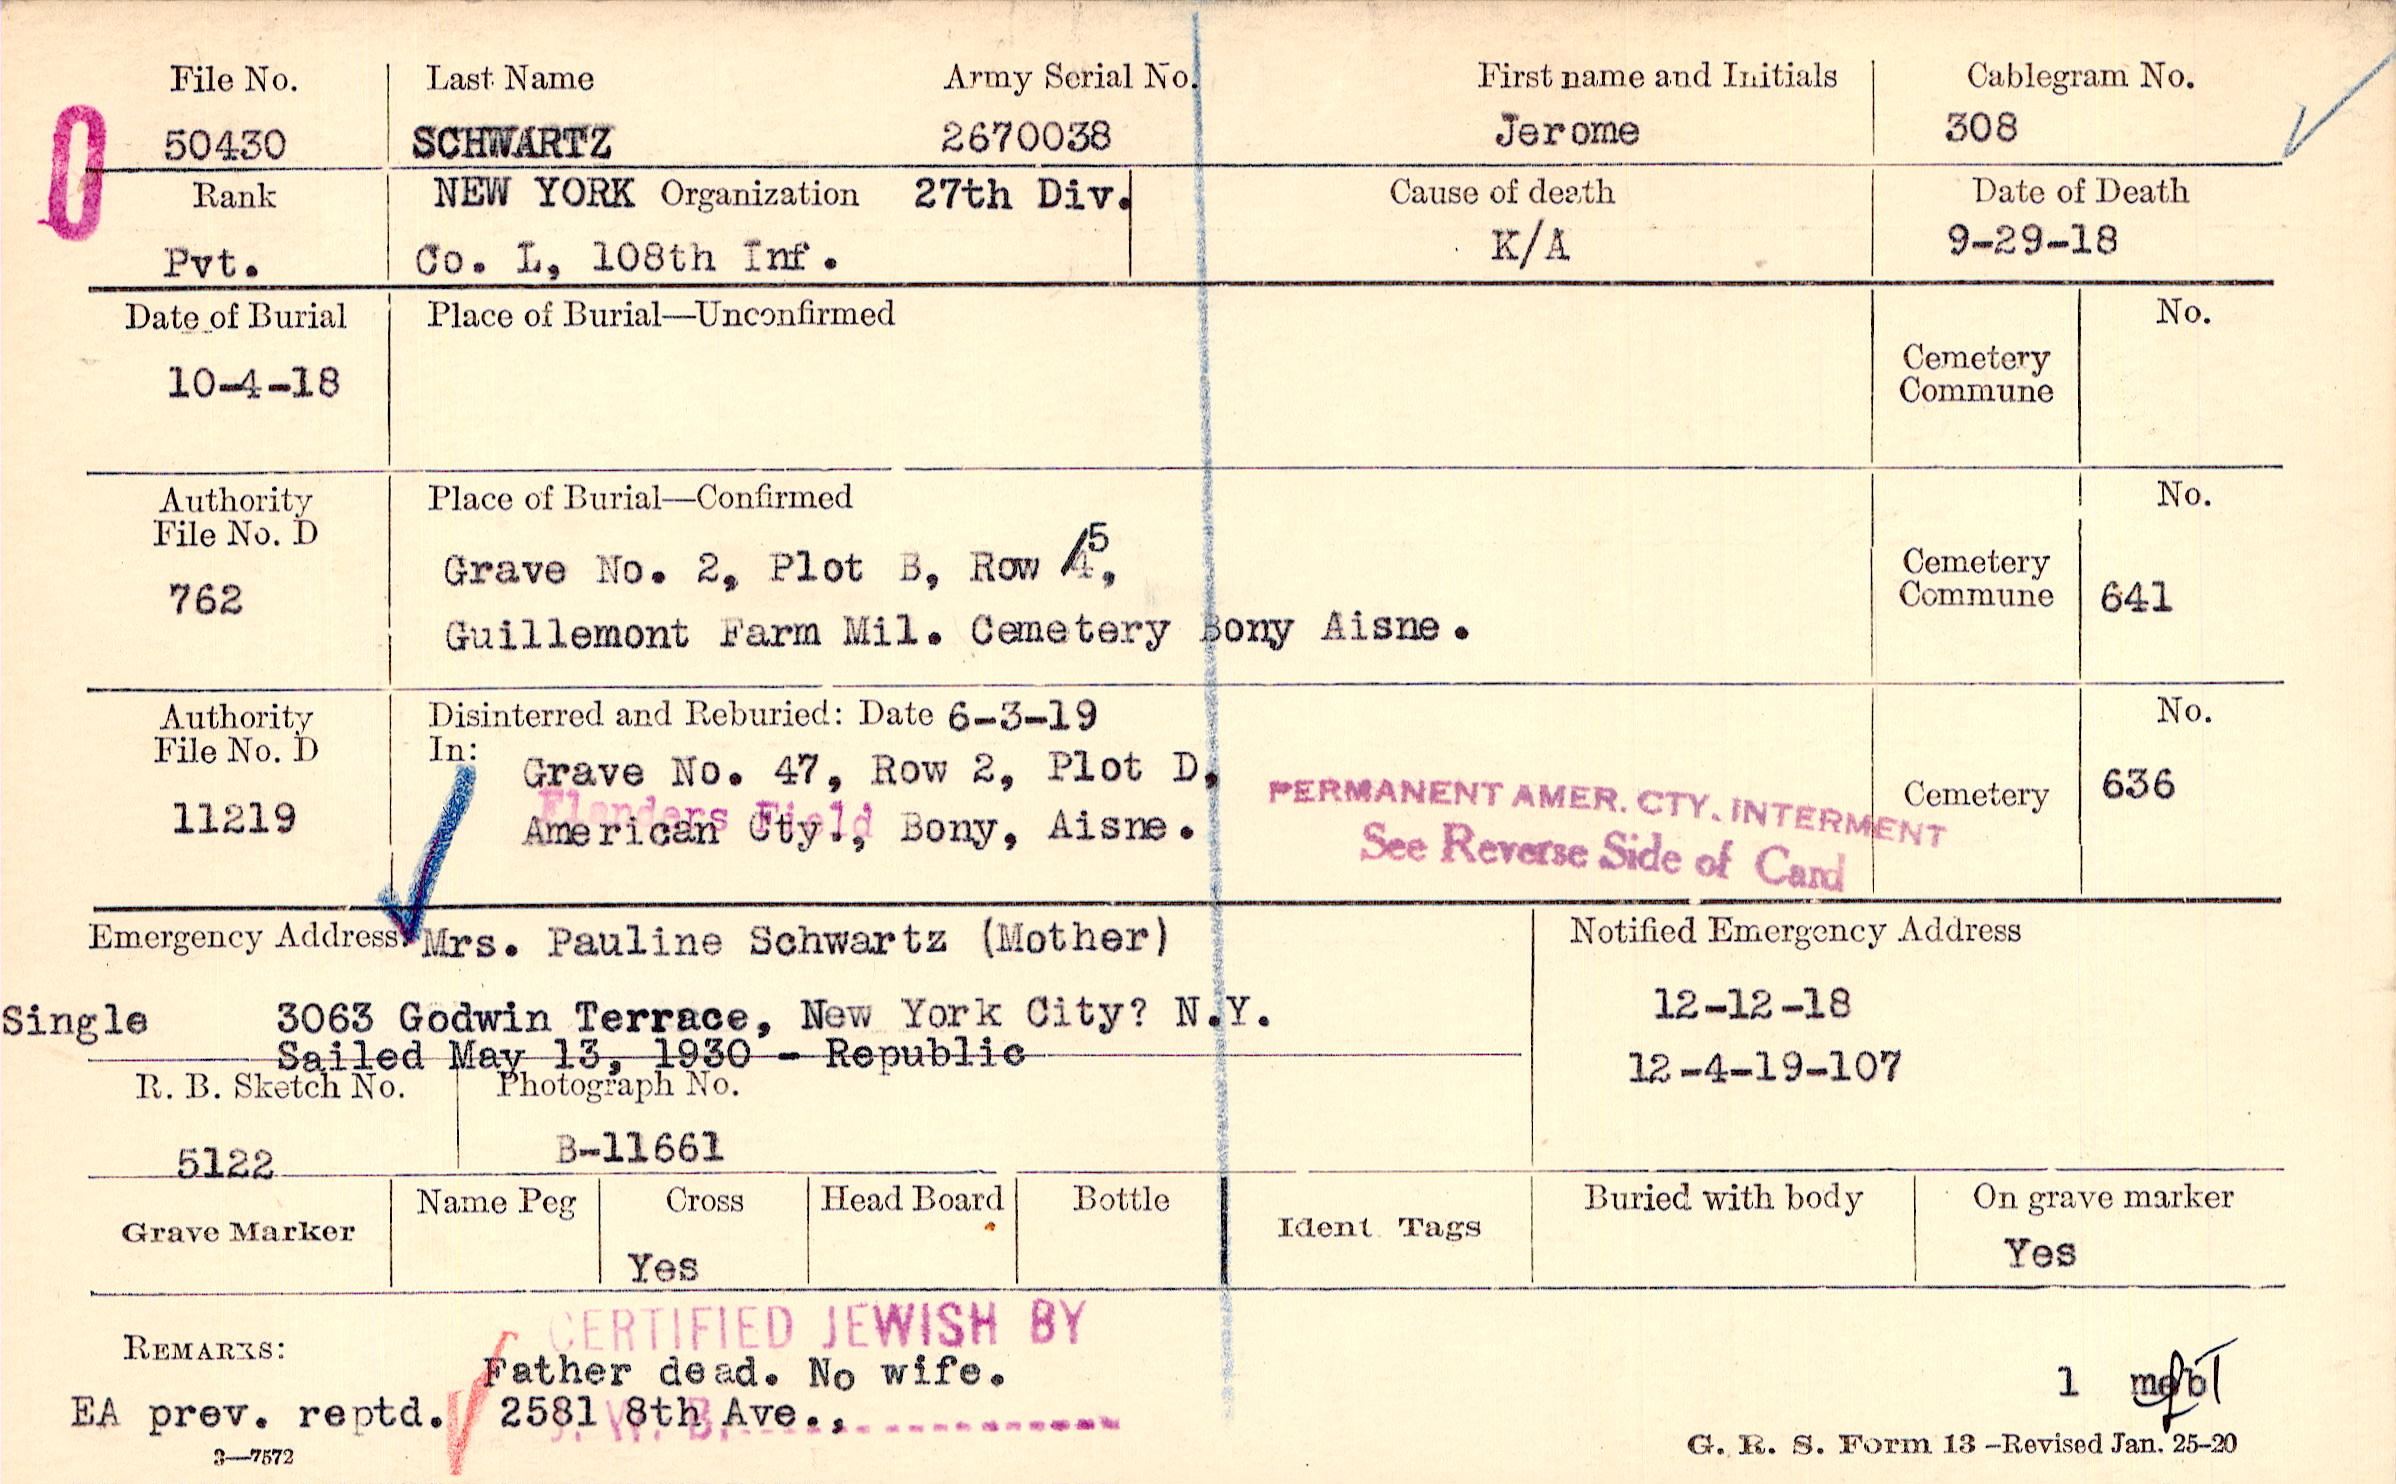 File No. Last Name Army Serial No. First name and Initials Cablegram No.
50430 SCHWARTZ 2670038 Jerome 308
Rank NEW YORK Organization 27th Div. Cause of death Date of Death
Pvt. Co. L, 108th Inf. K/A 9-29-18
Date of Burial Place of Burial—Unconfirmed No.
10-4-18 Cemetery
Commune
Authority Place of Burial—Confirmed No.
File No. D
762 Grave No. 2, Plot B, Row 4 5, Cemetery
Commune 641
Guillemont Farm Mil. Cemetery Bony Aisne.
Authority Disinterred and Reburied: Date 6-3-19 No.
File No. D In:
Grave No. 47, Row 2, Plot D,
11219 Flanders Field
American Cty., Bony, Aisne. Cemetery 636
PERMANENT AMER. CTY. INTERMENT
See Reverse Side of Card
Emergency Address: Mrs. Pauline Schwartz (Mother) Notified Emergency Address
Single 3063 Godwin Terrace, New York City? N.Y. 12-12-18
Sailed May 13, 1930 - Republic 12-4-19-107
R. B. Sketch No. Photograph No.
5122 B-11661
Grave Marker Name Peg Cross Head Board Bottle Ident Tags Buried with body On grave marker
Yes Yes
CERTIFIED JEWISH BY
REMARKS: Father dead. No wife. 1
EA prev. reptd. 2581 8th Ave.,
J. W. B.
3—7572 G. R. S. Form 13 -Revised Jan. 25-20